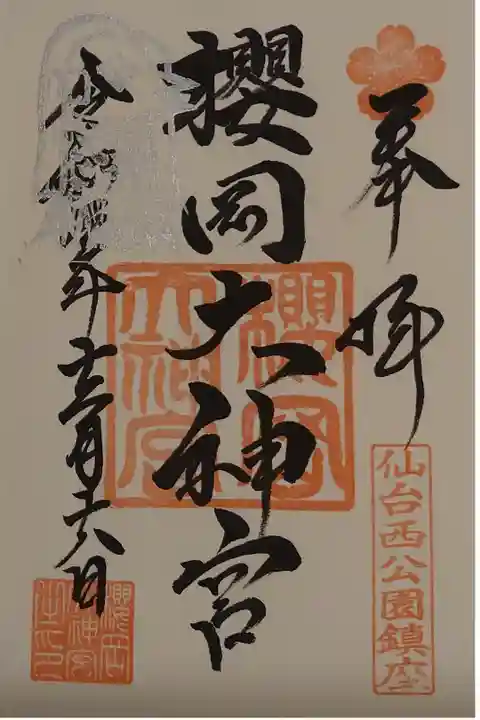 奉拝
仙台西公園鎮座
櫻岡大神宮
櫻岡大神宮
令和四年十二月十六日